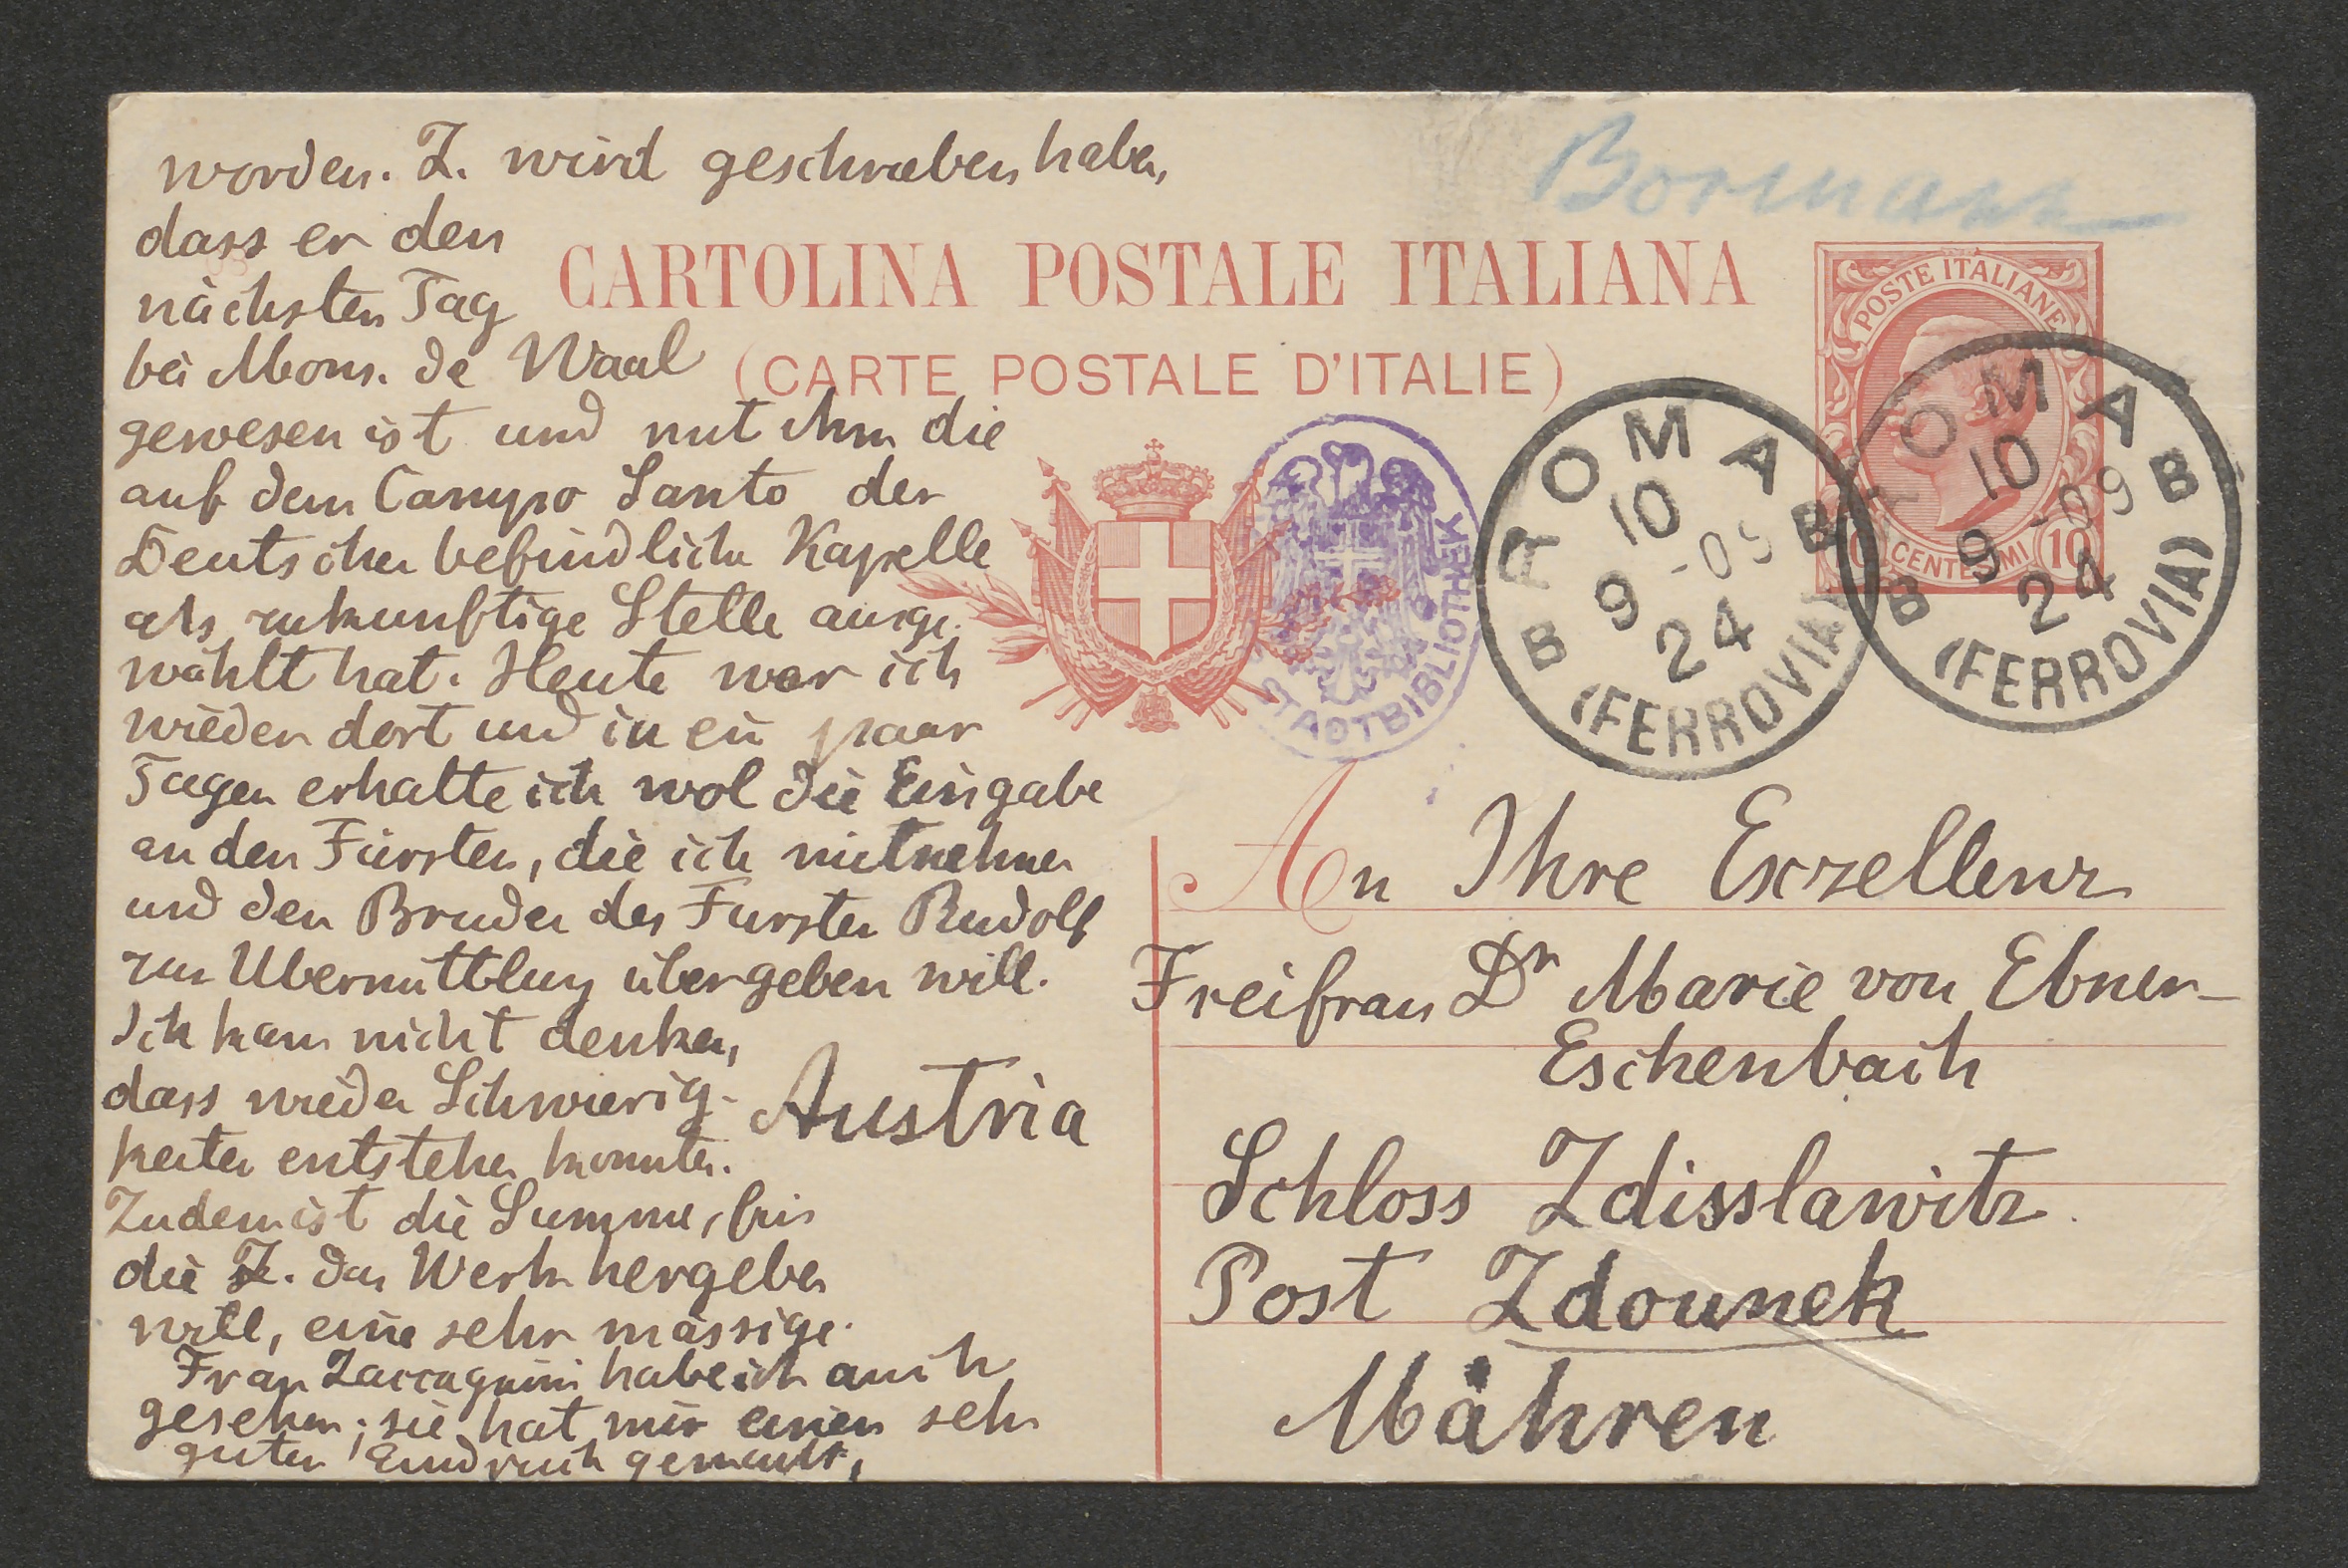 worden. Z. wird geschrieben haben,
dass er den
nächsten Tag
bei Mons. de Waal
gewesen ist und mit ihm die
auf dem Campo Santo der
Deutschen befindliche Kapelle
als zukunftige Stelle ausge-
wählt hat. Heute war ich
wieder dort und in ein paar
Tagen erhalte ich wol die Eingabe
an den Fürsten, die ich mitnehmen
und dem Bruder des Fürsten Rudolf
zur Übermittlung übergeben will.
Ich kann nicht denken,
dass wieder Schwierig-
keiten entstehen konnten.
Zudem ist die Summe, für
die Z. das Werk hergeben
will, eine sehr mässige.
Frau Zaccagnini habe ich auch
gesehen; sie hat mir einen sehr
guten Eindruck gemacht,
Bormann
CARTOLINA POSTALE ITALIANA
(CARTE POSTALE D'ITALIE)
POSTE ITALIANE
10 CENTESIMI 10
STADTBIBLIOTHEK
ROMA
10
9 -09
24
B B
(FERROVIA)
ROMA
10
9 -09
24
B B
(FERROVIA)
An Ihre Exzellenz
Freifrau Dr Marie von Ebner-
Eschenbach
Austria
Schloss Zdisslawitz
Post Zdounek
Mähren